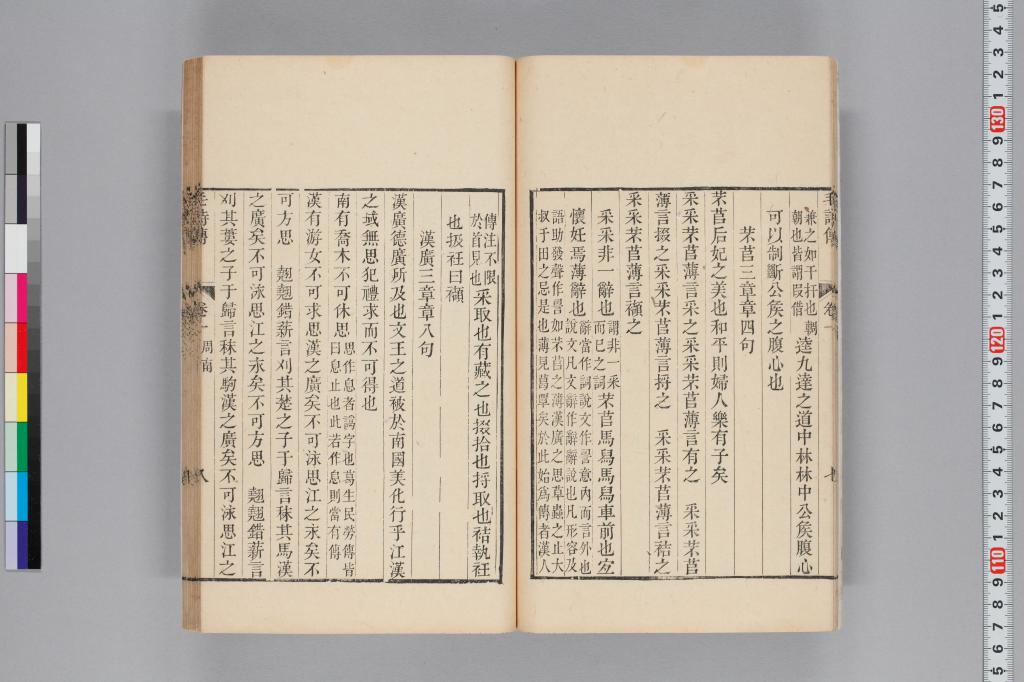 兼之如干扞也輖
朝也皆謂叚借
逵九達之道中林林中公矦腹心
可以制斷公矦之腹心也
芣苢三章章四句
芣苢后妃之美也和平則婦人樂有子矣
采采芣苢薄言采之采采芣苢薄言有之　采采芣苢
薄言掇之采采芣苢薄言捋之　采采芣苢薄言袺之
采采芣苢薄言襭之
采采非一辭也
謂非一采
而已之詞
芣苢馬舄馬舄車前也宐
懷妊焉薄辭也
辭當作詞說文作䛐意內而言外也
說文凡文辭作辭辭說也凡形容及
語助發聲作䛐如芣苢之薄漢廣之思草蟲之止大
叔于田之忌是也薄見葛覃矣於此始爲傳者漢人
傳注不限
於首見也
采取也有藏之也掇拾也捋取也袺執衽
也扱衽曰襭
漢廣三章章八句
漢廣德廣所及也文王之道被於南國美化行乎江漢
之域無思犯禮求而不可得也
南有喬木不可休思
思作息者譌字也葛生民勞傳皆
曰息止也此若作息則當有傳
漢有游女不可求思漢之廣矣不可泳思江之永矣不
可方思　翹翹錯薪言刈其楚之子于歸言秣其馬漢
之廣矣不可泳思江之永矣不可方思　翹翹錯薪言
刈其蔞之子于歸言秣其駒漢之廣矣不可泳思江之
毛詩傳　卷一　周南　八